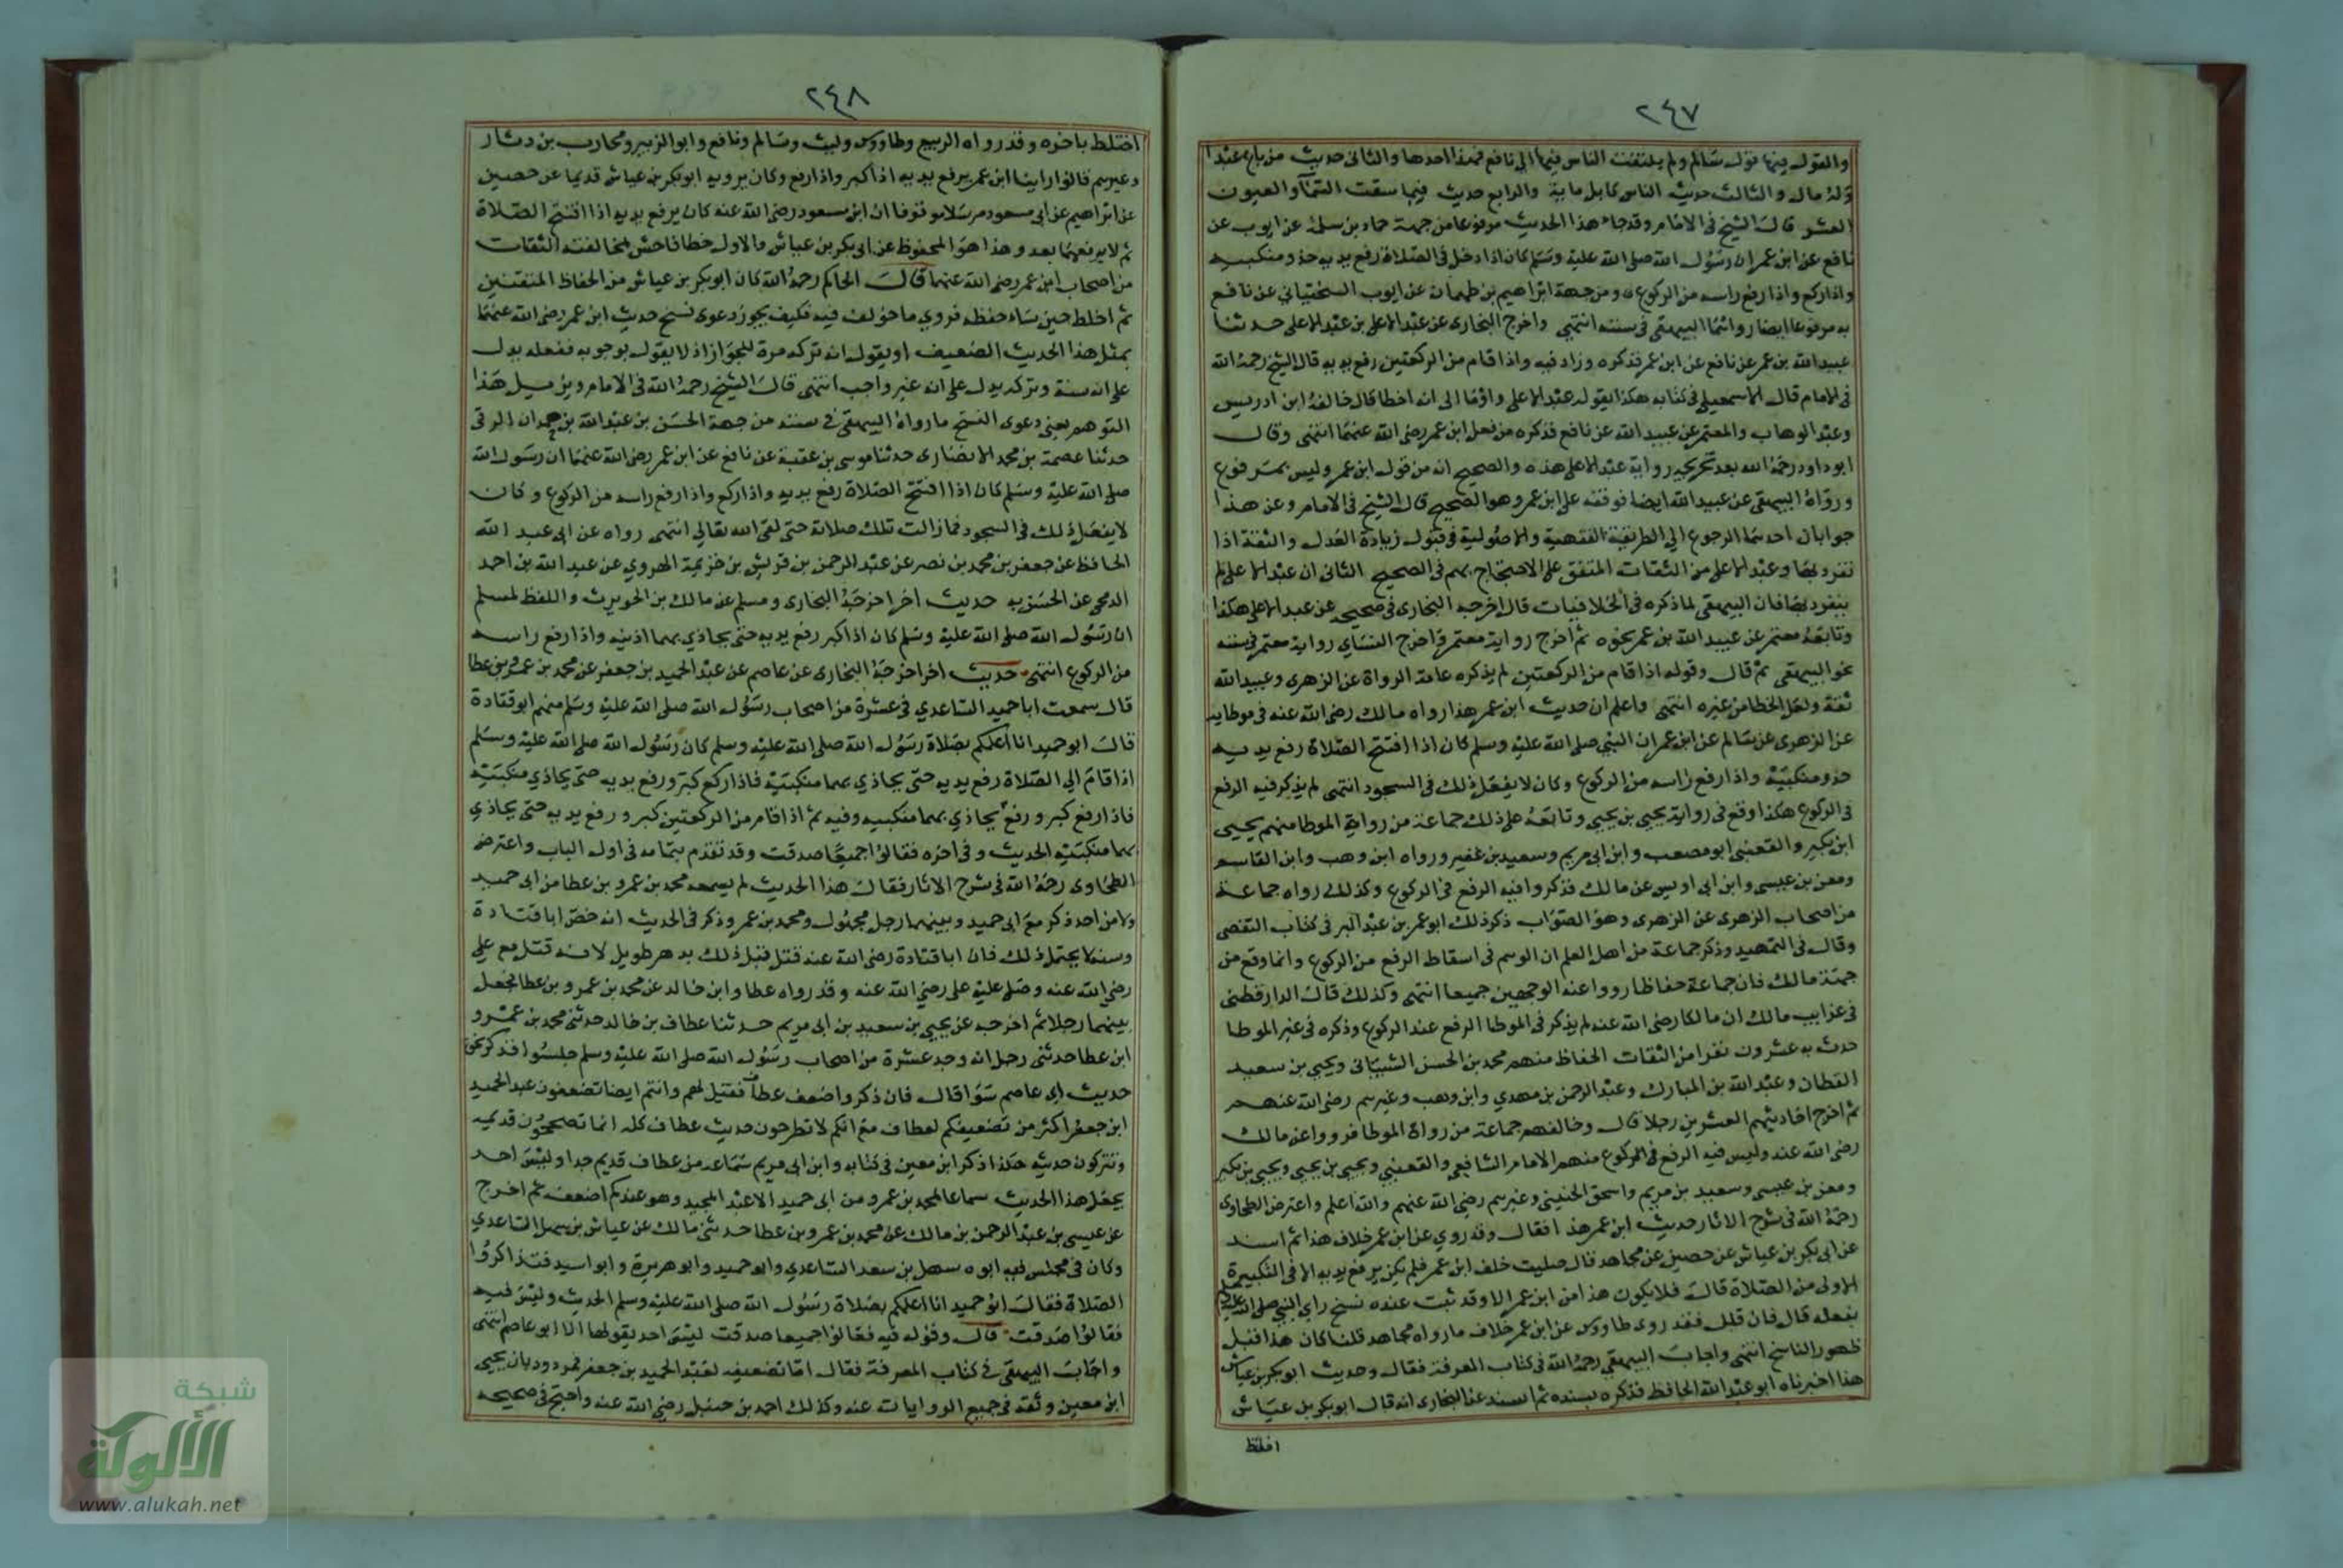 ٢٤٧
والقول فيها قول سالم ولم يلتفت الناس فيها الى نافع فهذا احدها والثاني حديث من باع عبدا
وله مال والثالث حديث الناس كابل ماية والرابع حديث فيما سقت السماء والعيون
العشر قال الشيخ في الامام وقد جاء هذا الحديث مرفوعا من جهة حماد بن سلمة عن ايوب عن
نافع عن ابن عمر ان رسول الله صلى الله عليه وسلم كان اذا دخل في الصلاة رفع يديه حذو منكبيه
واذا ركع واذا رفع راسه من الركوع ومن جهة ابراهيم بن طهمان عن ايوب السختياني عن نافع
به مرفوعا ايضا رواهما البيهقي في سننه انتهى واخرج البخاري عن عبد الاعلى بن عبد الاعلى حدثنا
عبيد الله بن عمر عن نافع عن ابن عمر فذكره وزاد فيه واذا قام من الركعتين رفع يديه قال الشيخ رحمه الله
في الامام قال الاسمعيلي في كتابه هكذا يقوله عبد الاعلى واومأ الى انه اخطا قال خالفه ابن ادريس
وعبد الوهاب والمعتمر عن عبيد الله عن نافع فذكره من فعل ابن عمر رضي الله عنهما انتهى وقال
ابو داود رحمه الله بعد تخريجه رواية عبد الاعلى هذه والصحيح انه من قول ابن عمر وليس بمرفوع
ورواه البيهقي عن عبيد الله ايضا فوقفه على ابن عمر وهو الصحيح قال الشيخ في الامام وعن هذا
جوابان احدهما الرجوع الى الطريقة الفقهية والاصولية في قبول زيادة العدل والثقة اذا
تفرد بها وعبد الاعلى من الثقات المتفق على الاحتجاج بهم في الصحيح الثاني ان عبد الاعلى لم
ينفرد بها فان البيهقي لما ذكره في الخلافيات قال اخرجه البخاري في صحيحه عن عبد الاعلى هكذا
وتابعه معتمر عن عبيد الله بن عمر بنحوه ثم اخرج رواية معتمر واخرج النساي رواية معتمر في سننه
نحو البيهقي ثم قال وقوله اذا قام من الركعتين لم يذكره عامة الرواة عن الزهري وعبيد الله
ثقة ولعل الخطا من غيره انتهى واعلم ان حديث ابن عمر هذا رواه مالك رضي الله عنه في موطايه
عن الزهري عن سالم عن ابن عمر ان النبي صلى الله عليه وسلم كان اذا افتتح الصلاة رفع يديه
حذو منكبيه واذا رفع راسه من الركوع وكان لا يفعل ذلك في السجود انتهى لم يذكر فيه الرفع
في الركوع هكذا وقع في رواية يحيى بن يحيى وتابعه على ذلك جماعة من رواة الموطا منهم يحيى
ابن بكير والقعنبي ابو مصعب وابن ابي مريم وسعيد بن عفير ورواه ابن وهب وابن القاسم
ومعن بن عيسى وابن ابي اويس عن مالك فذكروا فيه الرفع في الركوع وكذلك رواه جماعة
من اصحاب الزهري عن الزهري وهو الصواب ذكر ذلك ابو عمر بن عبد البر في كتاب التقصي
وقال في التمهيد وذكر جماعة من اهل العلم ان الوهم في اسقاط الرفع من الركوع وانما وقع من
جهة مالك فان جماعة حفاظا رووا عنه الوجهين جميعا انتهى وكذلك قال الدارقطني
في غرايب مالك ان مالكا رضي الله عنه لم يذكر في الموطا الرفع عند الركوع وذكره في غير الموطا
حدث به عشرون نفرا من الثقات الحفاظ منهم محمد بن الحسن الشيباني ويحيى بن سعيد
القطان وعبد الله بن المبارك وعبد الرحمن بن مهدي وابن وهب وغيرهم رضي الله عنهم
ثم اخرج احاديثهم العشرين رجلا قال وخالفهم جماعة من رواة الموطا فرووا عن مالك
رضي الله عنه وليس فيه الرفع في الركوع منهم الامام الشافعي والقعنبي ويحيى بن يحيى ويحيى بن بكير
ومعن بن عيسى وسعيد بن مريم واسحق الحنيني وغيرهم رضي الله عنهم والله اعلم واعترض الطحاوي
رحمه الله في شرح الاثار حديث ابن عمر هذا فقال وقد روي عن ابن عمر خلاف هذا ثم اسند
عن ابي بكر بن عياش عن حصين عن مجاهد قال صليت خلف ابن عمر فلم يكن يرفع يديه الا في التكبيرة
الاولى من الصلاة قال فلا يكون هذا من ابن عمر الا وقد ثبت عنده نسخ راي النبي صلى الله عليه وسلم
بفعله قال فان قلل فقد روى طاووس عن ابن عمر خلاف ما رواه مجاهد قلنا كان هذا قبل
ظهور الناسخ انتهى واجاب البيهقي رحمه الله في كتاب المعرفة فقال وحديث ابو بكر بن عياش
هذا اخبرناه ابو عبد الله الحافظ فذكره بسنده ثم اسند عن البخاري انه قال ابو بكر بن عياش
اختلط
٢٤٨
اختلط باخره وقد رواه الربيع وطاووس وليث وسالم ونافع وابو الزبير ومحارب بن دثار
وغيرهم قالوا راينا ابن عمر يرفع يديه اذا كبر واذا رفع وكان يرويه ابو بكر بن عياش قديما عن حصين
عن ابراهيم عن ابي مسعود مرسلا موقوفا ان ابن مسعود رضي الله عنه كان يرفع يديه اذا افتتح الصلاة
ثم لا يرفعهما بعد وهذا هو المحفوظ عن ابي بكر بن عياش والاول خطا فاحش لمخالفته الثقات
من اصحاب ابن عمر رضي الله عنهما قال الحاكم رحمه الله كان ابو بكر بن عياش من الحفاظ المتقنين
ثم اخلط حين ساء حفظه فروي ما خولف فيه فكيف يجوز دعوى نسخ حديث ابن عمر رضي الله عنهما
بمثل هذا الحديث الضعيف او يقول انه تركه مرة للجواز اذ لا يقول بوجوبه ففعله يدل
على انه سنة وتركه يدل على انه غير واجب انتهى قال الشيخ رحمه الله في الامام ويزيل هذا
التوهم يعني دعوى النسخ ما رواه البيهقي في سننه من جهة الحسن بن عبد الله بن حمدان الرقي
حدثنا عصمة بن محمد الانصاري حدثنا موسى بن عقبة عن نافع عن ابن عمر رضي الله عنهما ان رسول الله
صلى الله عليه وسلم كان اذا افتتح الصلاة رفع يديه واذا ركع واذا رفع راسه من الركوع وكان
لا يفعل ذلك في السجود فما زالت تلك صلاته حتى لقي الله تعالى انتهى رواه عن ابي عبد الله
الحافظ عن جعفر بن محمد بن نصر عن عبد الرحمن بن قريش بن خزيمة الهروي عن عبد الله بن احمد
الدمجي عن الحسن به حديث اخر اخرجه البخاري ومسلم عن مالك بن الحويرث واللفظ لمسلم
ان رسول الله صلى الله عليه وسلم كان اذا كبر رفع يديه حتى يحاذي بهما اذنيه واذا رفع راسه
من الركوع انتهى حديث اخر اخرجه البخاري عن عاصم عن عبد الحميد بن جعفر عن محمد بن عمرو بن عطا
قال سمعت ابا حميد الساعدي في عشرة من اصحاب رسول الله صلى الله عليه وسلم منهم ابو قتادة
قال ابو حميد انا اعلمكم بصلاة رسول الله صلى الله عليه وسلم كان رسول الله صلى الله عليه وسلم
اذا قام الى الصلاة رفع يديه حتى يحاذي بهما منكبيه فاذا ركع كبر ورفع يديه حتى يحاذي منكبيه
فاذا رفع كبر ورفع يحاذي بهما منكبيه وفيه ثم اذا قام من الركعتين كبر ورفع يديه حتى يحاذي
بهما منكبيه الحديث وفي اخره فقالوا جميعا صدقت وقد تقدم بتمامه في اول الباب واعترضه
الطحاوي رحمه الله في شرح الاثار فقال هذا الحديث لم يسمعه محمد بن عمرو بن عطا من ابي حميد
ولا من احد ذكر مع ابي حميد وبينهما رجل مجهول ومحمد بن عمر وذكر في الحديث انه حضر ابا قتادة
وسنه لا يحتمل ذلك فان ابا قتادة رضي الله عنه قتل قبل ذلك بدهر طويل لانه قتل مع علي
رضي الله عنه وصلى عليه علي رضي الله عنه وقد رواه عطا وابن خالد عن محمد بن عمرو بن عطا فجعل
بينهما رجلا ثم اخرجه عن يحيى بن سعيد بن ابي مريم حدثنا عطاف بن خالد حدثني محمد بن عمرو
ابن عطا حدثني رجل انه وجد عشرة من اصحاب رسول الله صلى الله عليه وسلم جلسوا فذكر نحو
حديث ابي عاصم سوا قال فان ذكروا ضعف عطاف فقيل لهم وانتم ايضا تضعفون عبد الحميد
ابن جعفر اكثر من تضعيفكم لعطاف مع انكم لا تطرحون حديث عطاف كله انما تصححون قديمه
وتتركون حديثه هكذا ذكر ابن معين في كتابه وابن ابي مريم سماعه من عطاف قديم جدا وليس احد
يجعل هذا الحديث سماعا لمحمد بن عمرو من ابي حميد الا عبد المجيد وهو عندكم اضعف ثم اخرج
عن عيسى بن عبد الرحمن بن مالك عن محمد بن عمرو بن عطا حدثني مالك عن عياش بن سهل الساعدي
وكان في مجلس فيه ابوه سهل بن سعد الساعدي وابو حميد وابو هريرة وابو اسيد فتذاكروا
الصلاة فقال ابو حميد انا اعلمكم بصلاة رسول الله صلى الله عليه وسلم الحديث وليس فيه
فقالوا صدقت قال وقوله فيه فقالوا جميعا صدقت ليس احد يقولها الا ابو عاصم انتهى
واجاب البيهقي في كتاب المعرفة فقال اما تضعيفه لعبد الحميد بن جعفر فمردود بان يحيى
ابن معين وثقه في جميع الروايات عنه وكذلك احمد بن حنبل رضي الله عنه واحتج في صحيحه
شبكة
الألوكة
www.alukah.net